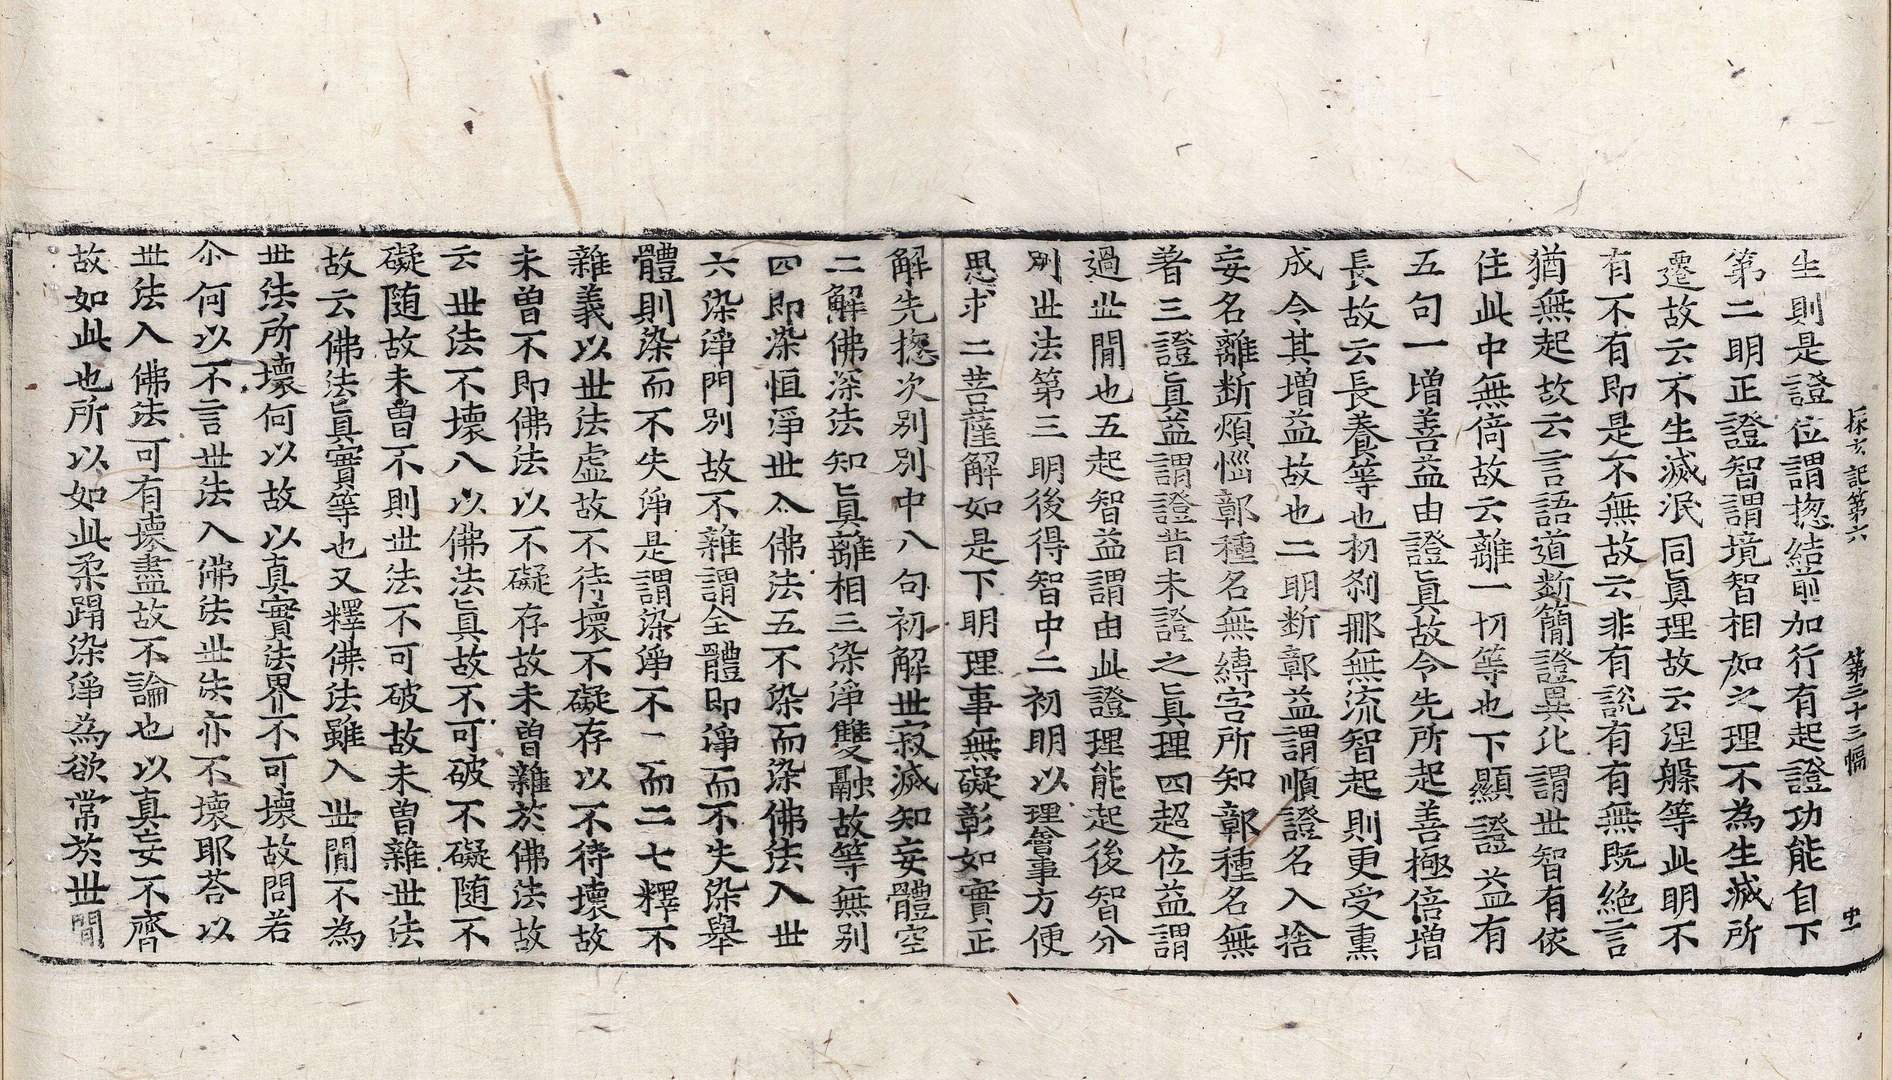 探玄記第六 第三十三幅 出
生則是證位謂揔結前加行有起證功能自下
第二明正證智謂境智相如之理不為生滅所
遷故云不生滅泯同眞理故云涅槃等此明不
有不有即是不無故云非有說有有無既絶言
猶無起故云言語道断簡證異比謂世智有依
住此中無倚故云離一切等也下顯證益有
五句一增善益由證眞故令先所起善極倍增
長故云長養等也初刹那無流智起則更受熏
成令其增益故也二明断鄣益謂順證名入捨
妄名離断煩惱鄣種名無縛害所知鄣種名無
著三證眞益謂證昔未證之眞理四超位益謂
過世閒也五起智益謂由此證理能起後智分
別世法第三明後得智中二初明以理會事方便
思求二菩薩解如是下明理事無礙彰如實正
解先揔次別別中八句初解世寂滅知妄體空
二解佛深法知眞離相三染淨雙融故等無別
四即染恒淨世入佛法五不染而染佛法入世
六染淨門別故不雜謂全體即淨而不失染舉
體則染而不失淨是謂染淨不一而二七釋不
雜義以世法虛故不待壞不礙存以不待壞故
未曾不即佛法以不礙存故未曾雜於佛法故
云世法不壞八以佛法眞故不可破不礙随不
礙随故未曾不則世法不可破故未曾雜世法
故云佛法眞實等也又釋佛法雖入世閒不為
世法所壞何以故以真實法界不可壞故問若
尒何以不言世法入佛法世法亦不壞耶荅以
世法入佛法可有壞盡故不論也以真妄不齊
故如此也所以如此柔蹋染淨為欲常於世閒